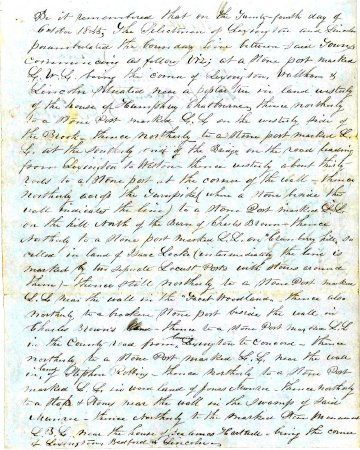 Be it remembered that on the Twenty-fourth day of
October The Selectmen of Lexington and Lincoln
perambulated the boundary line between said Towns
commencing as follow Viz; at a Stone post marked
L. W. L. being the corner of Lexington, Waltham &
Lincoln situated near a tree in land westerly
of the house of Humphrey thence northerly
to a Stone Post marked L. L. on the westerly side of
the Brook - thence northerly to a Stone post marked L.
L. at the Southerly end of the Bridge on the road leading
from Lexington to Weston thence westerly about thirty
rods to a Stone post at the corner of the wall - thence
northerly across the Turnpike (where a stone beside the
wall indicates the line) to a Stone Post marked L. L.
on the hill North of the Barn of Charles Brown - thence
Northerly to a Stone post marked L. L. on hill, so
called in land of Isaac Locke (intermediately the line is
marked by two separate Locust Posts with Stones around
them) - thence still northerly to a Stone Post marked
L. L. near the wall in the Woodland, thence also
northerly to a broken Stone post beside the wall in
Charles Brown's - thence to a Stone Post marked L. L.
in the County road from Lexington to Concord - thence
northerly to a Stone Post marked L. L. near the wall
in land Stephen Robbins - thence northerly to a Stone Post
marked L. L. in wood land of Jonas Munroe - thence northerly
to a Stake & Stones near the wall in the Swamp of said
Munroe - thence Northerly to the marked Stone Monument
L. B. L. near the house of - being the corner
of Lexington, Bedford & Lincoln